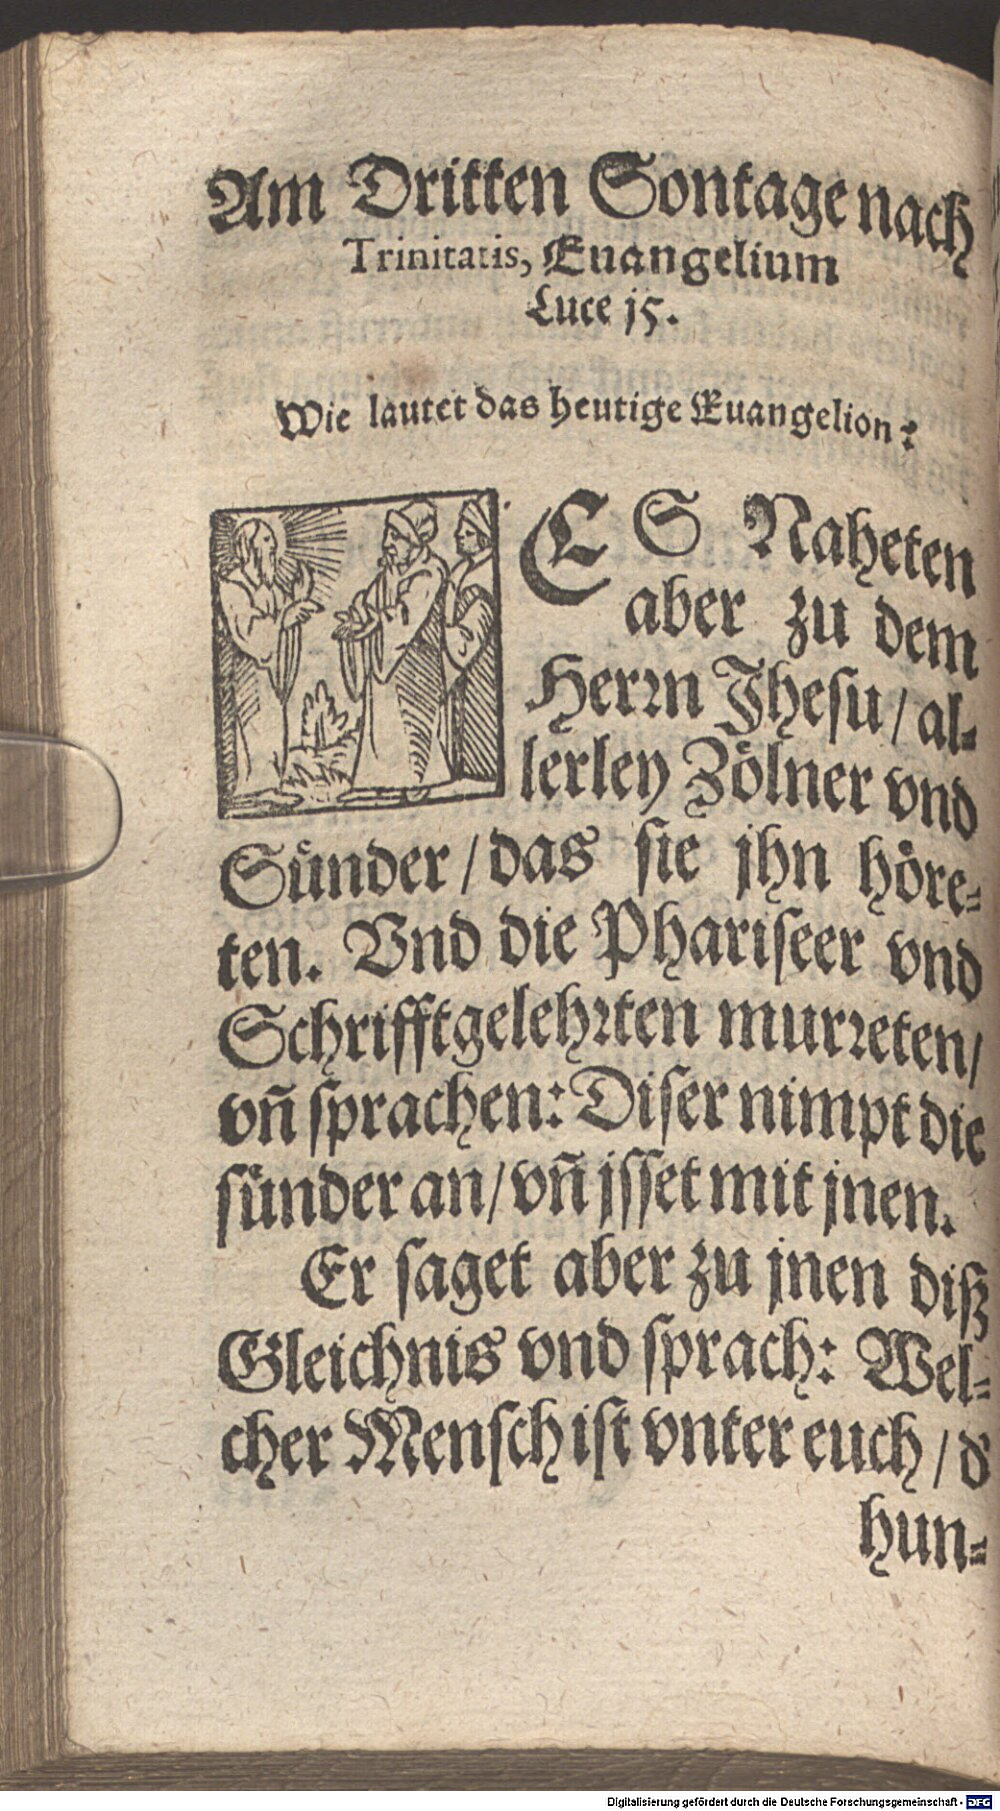 Am Dritten Sontage nach
Trinitatis, Euangelium
Luce j5.
Wie lautet das heutige Euangelion?
ES Naheten
aber zu dem
Herꝛn Jhesu / al⸗
lerley Zoͤlner vnd
Suͤnder / das sie jhn hoͤre⸗
ten. Vnd die Phariseer vnd
Schrifftgelehꝛten murꝛeten /
vñ sprachen: Diser nimpt die
suͤnder an / vñ jsset mit jnen.
Er saget aber zu jnen diß
Gleichnis vnd sprach: Wel⸗
cher Mensch ist vnter euch / d'
hun⸗
Digitalisierung gefördert durch die Deutsche Forschungsgemeinschaft - DFG